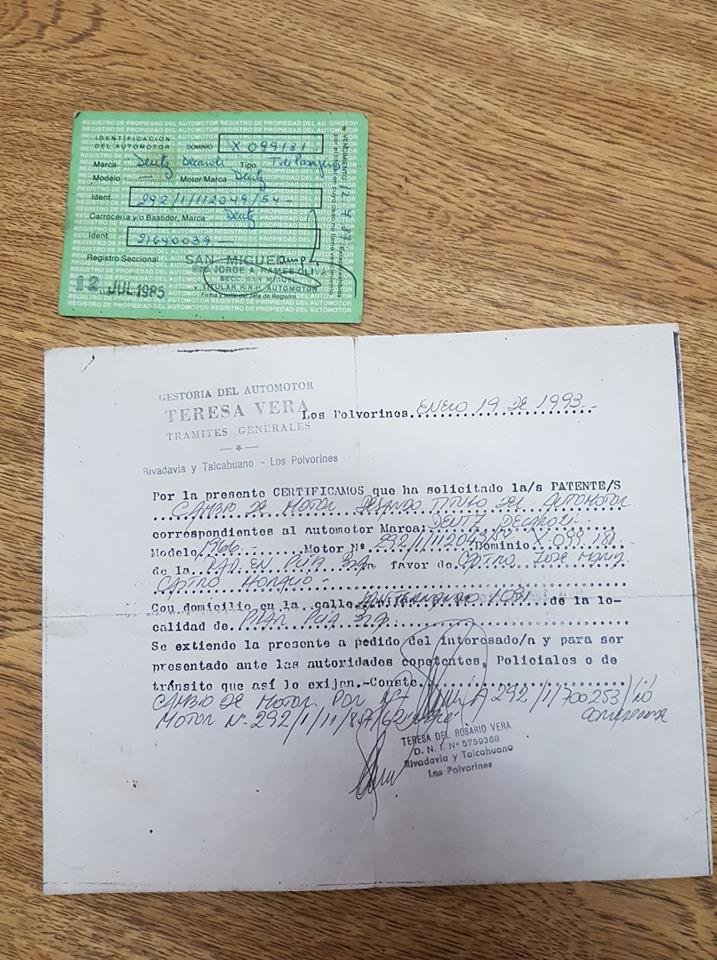 REGISTRO DE PROPIEDAD DEL AUTOMOTOR REGISTRO DE PROPIEDAD DEL AUTOMOTOR
IDENTIFICACION
DEL AUTOMOTOR DOMINIO X 099181
Marca Deutz Decaroli Tipo T. de Pasajeros
Modelo — Motor Marca Deutz
Ident. 292/1/112049/54-
Carrocería y/o Bastidor, Marca Deutz
Ident. 91640039 —
Registro Seccional SAN MIGUEL
JORGE A. RAMES OLIVA
SECC. SAN MIGUEL
12 JUL 1985 TITULAR R.N.P. AUTOMOTOR
Firma y sello del Jefe de Registro
REGISTRO DE PROPIEDAD DEL AUTOMOTOR REGISTRO DE PROPIEDAD DEL AUTOMOTOR
GESTORIA DEL AUTOMOTOR
TERESA VERA
TRAMITES GENERALES
Los Polvorines. ENERO 19 DE 1993.-
Rivadavia y Talcahuano - Los Polvorines
Por la presente CERTIFICAMOS que ha solicitado la/s PATENTE/S
CAMBIO DE MOTOR TITULO DEL AUTOMOTOR
correspondientes al automotor Marca: DEUTZ DECAROLI
Modelo 1966.- Motor Nº 292/1/112049/54 Dominio X 099 181.-
de la RAD. EN PCIA BsAs a favor de CASTRO JOSE MARIA
CASTRO HORACIO.-
Con domicilio en la calle SAN FERNANDO 1031 de la lo-
calidad de PILAR PCIA BsAs.
Se extiende la presente a pedido del interesado/a y para ser
presentado ante las autoridades copetentes, Policiales o de
tránsito que así lo exijan.-Conste
CAMBIO DE MOTOR. POR 292/1/700253/10
MOTOR Nº 292/1/11/857/62
TERESA DEL ROSARIO VERA
D. N. I. Nº 5759368
Rivadavia y Talcahuano
Los Polvorines